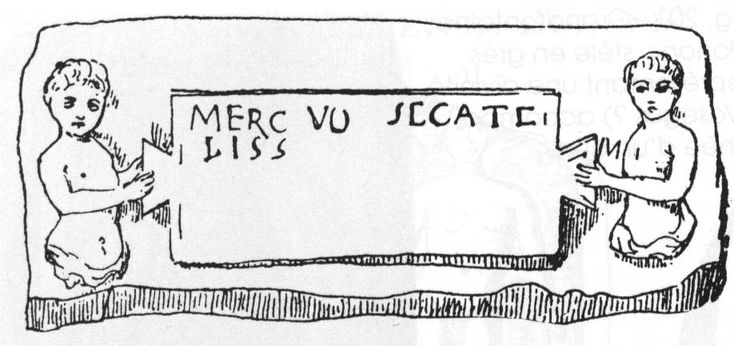 MERC VO SECATE
LISS
M